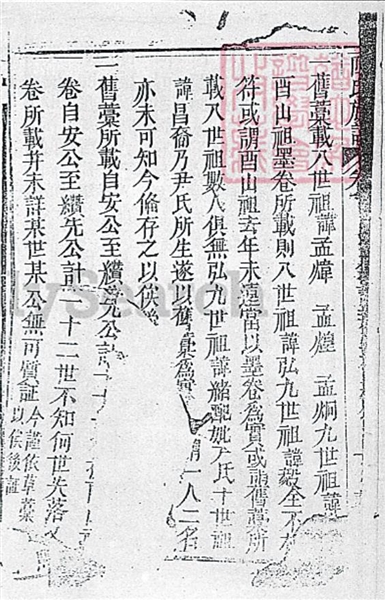 氏族譜
舊稾載八世祖諱孟煒 孟煌 孟炯九世祖諱
酉山祖墨卷所載則八世祖諱弘九世祖諱緩全不相
符或謂酉山祖去年未遠當以墨卷為實或謂舊稾所
載八世祖數人俱無弘九世祖諱緒配妣尹氏十世祖
諱昌裔乃尹氏所生遂以舊稾為實 謂一人二名
亦未可知今俻存之以俟
一舊稾所載自安公至纘先公計十
卷自安公至纘先公計一十二世不知何世失落
卷所載并未詳某世某公無可質証今謹依草稾
以俟後証